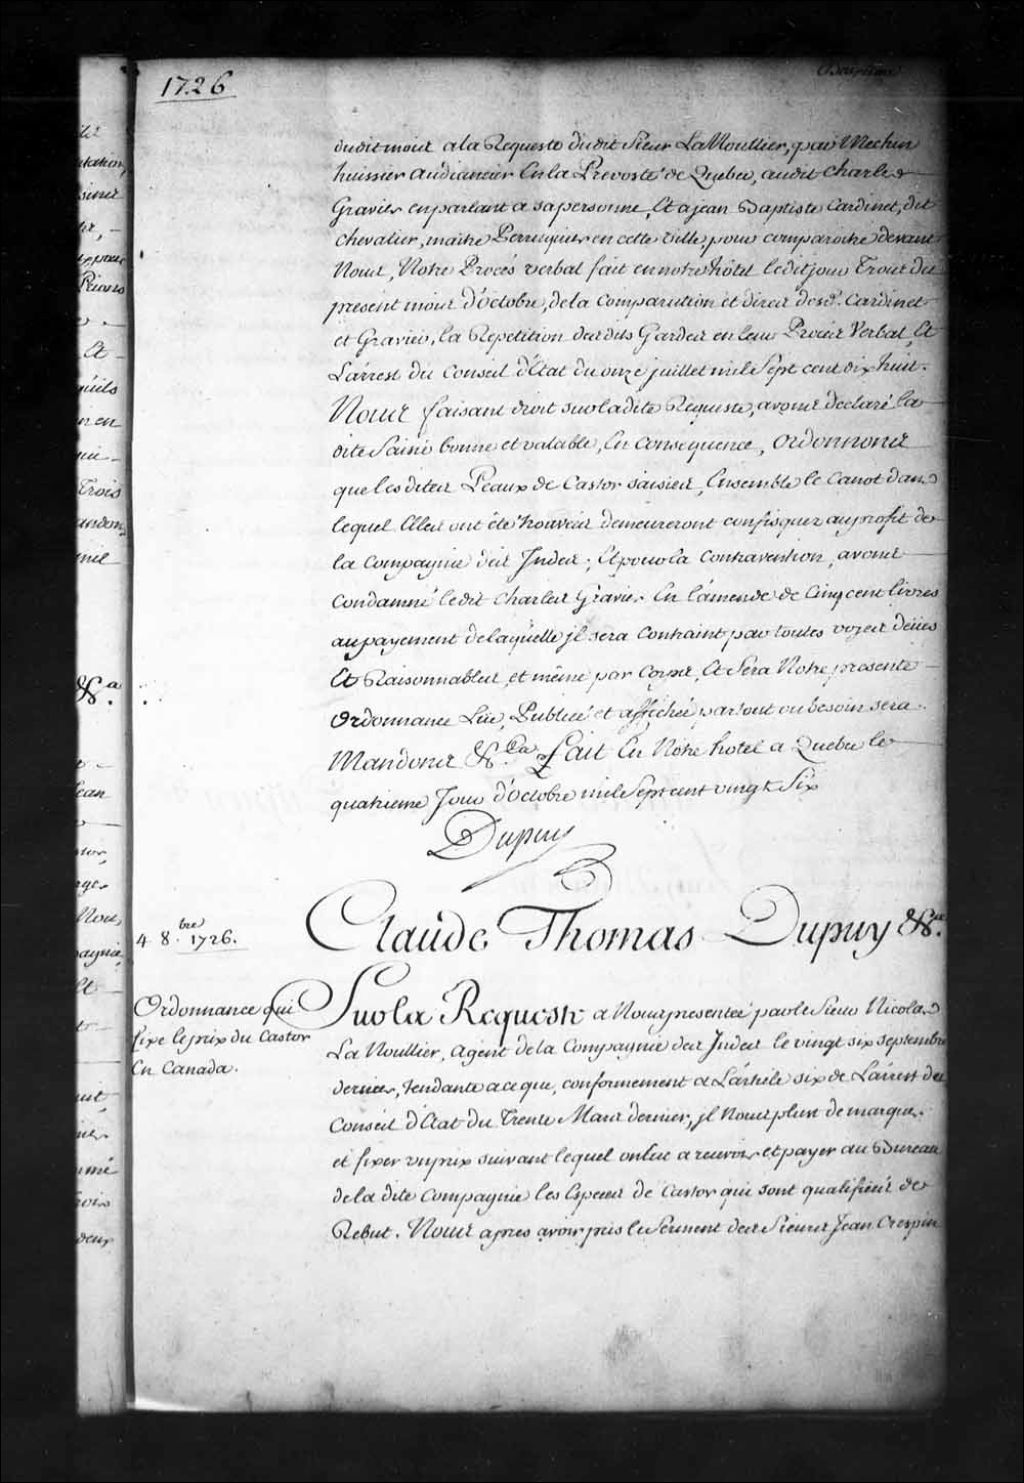 1726
dudit mois a la Requeste dudit Sieur La Noullier, par Mechin
huissier audiancier En la Prevosté de Quebec, audit Charles
Gravier en parlant a sa personne, Et a jean Baptiste Cardinet, dit
chevalier, maitre Perruquier en cette ville, pour comparoitre devant
Nous, Notre Procès verbal fait en notre hôtel ledit jour Trois du
present mois d'octobre, de la Comparution et dires desd. Cardinet
et Gravier, la Repetition desdits Gardes en leur Procés Verbal, Et
L'arrest du Conseil d'Etat du onze juillet mil Sept cent dix huit.
Nous faisant droit sur la dite Requeste, avons declaré la
dite Saisie bonne et valable, En Consequence, Ordonnons
que lesdites Peaux de Castor saisies, Ensemble le Canot dans
lequel Elles ont été trouvées demeureront confisquez au profit de
la Compagnie des Indes; Et pour la Contravention, avons
Condamné ledit Charles Gravier En l'amende de Cinq cent livres
au payement de laquelle jl sera Contraint par toutes voyes deües
Et Raisonnables, et même par Corps, Et Sera Notre presente
Ordonnance Lüe, Publiée et affichée partout ou besoin sera.
Mandons &c.a Fait En Notre hotel a Quebec le
quatrieme Jour d'octobre mil Sept cent vingt Six
Dupuy
4 8.bre 1726.
Claude Thomas Dupuy &c.
Ordonnance qui
fixe le prix du Castor
En Canada.
Sur la Requeste a Nous presentée par le Sieur Nicolas
La Noullier, agent de la Compagnie des Indes le vingt six septembre
dernier, tendante a ce que, conformement a L'article six de L'arrest du
Conseil d'Etat du Trente Mars dernier, jl Nous plust de marquer
et fixer un prix suivant lequel on Eue a recevoir et payer au Bureau
de la dite Compagnie les Especes de Castor qui sont qualifiées de
Rebut. Nous apres avoir pris le Serment des Sieurs Jean Crespin